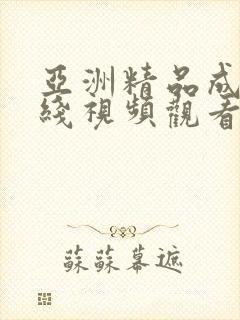 亞洲精品成
綫視頻觀看
蘇蘇幕遮